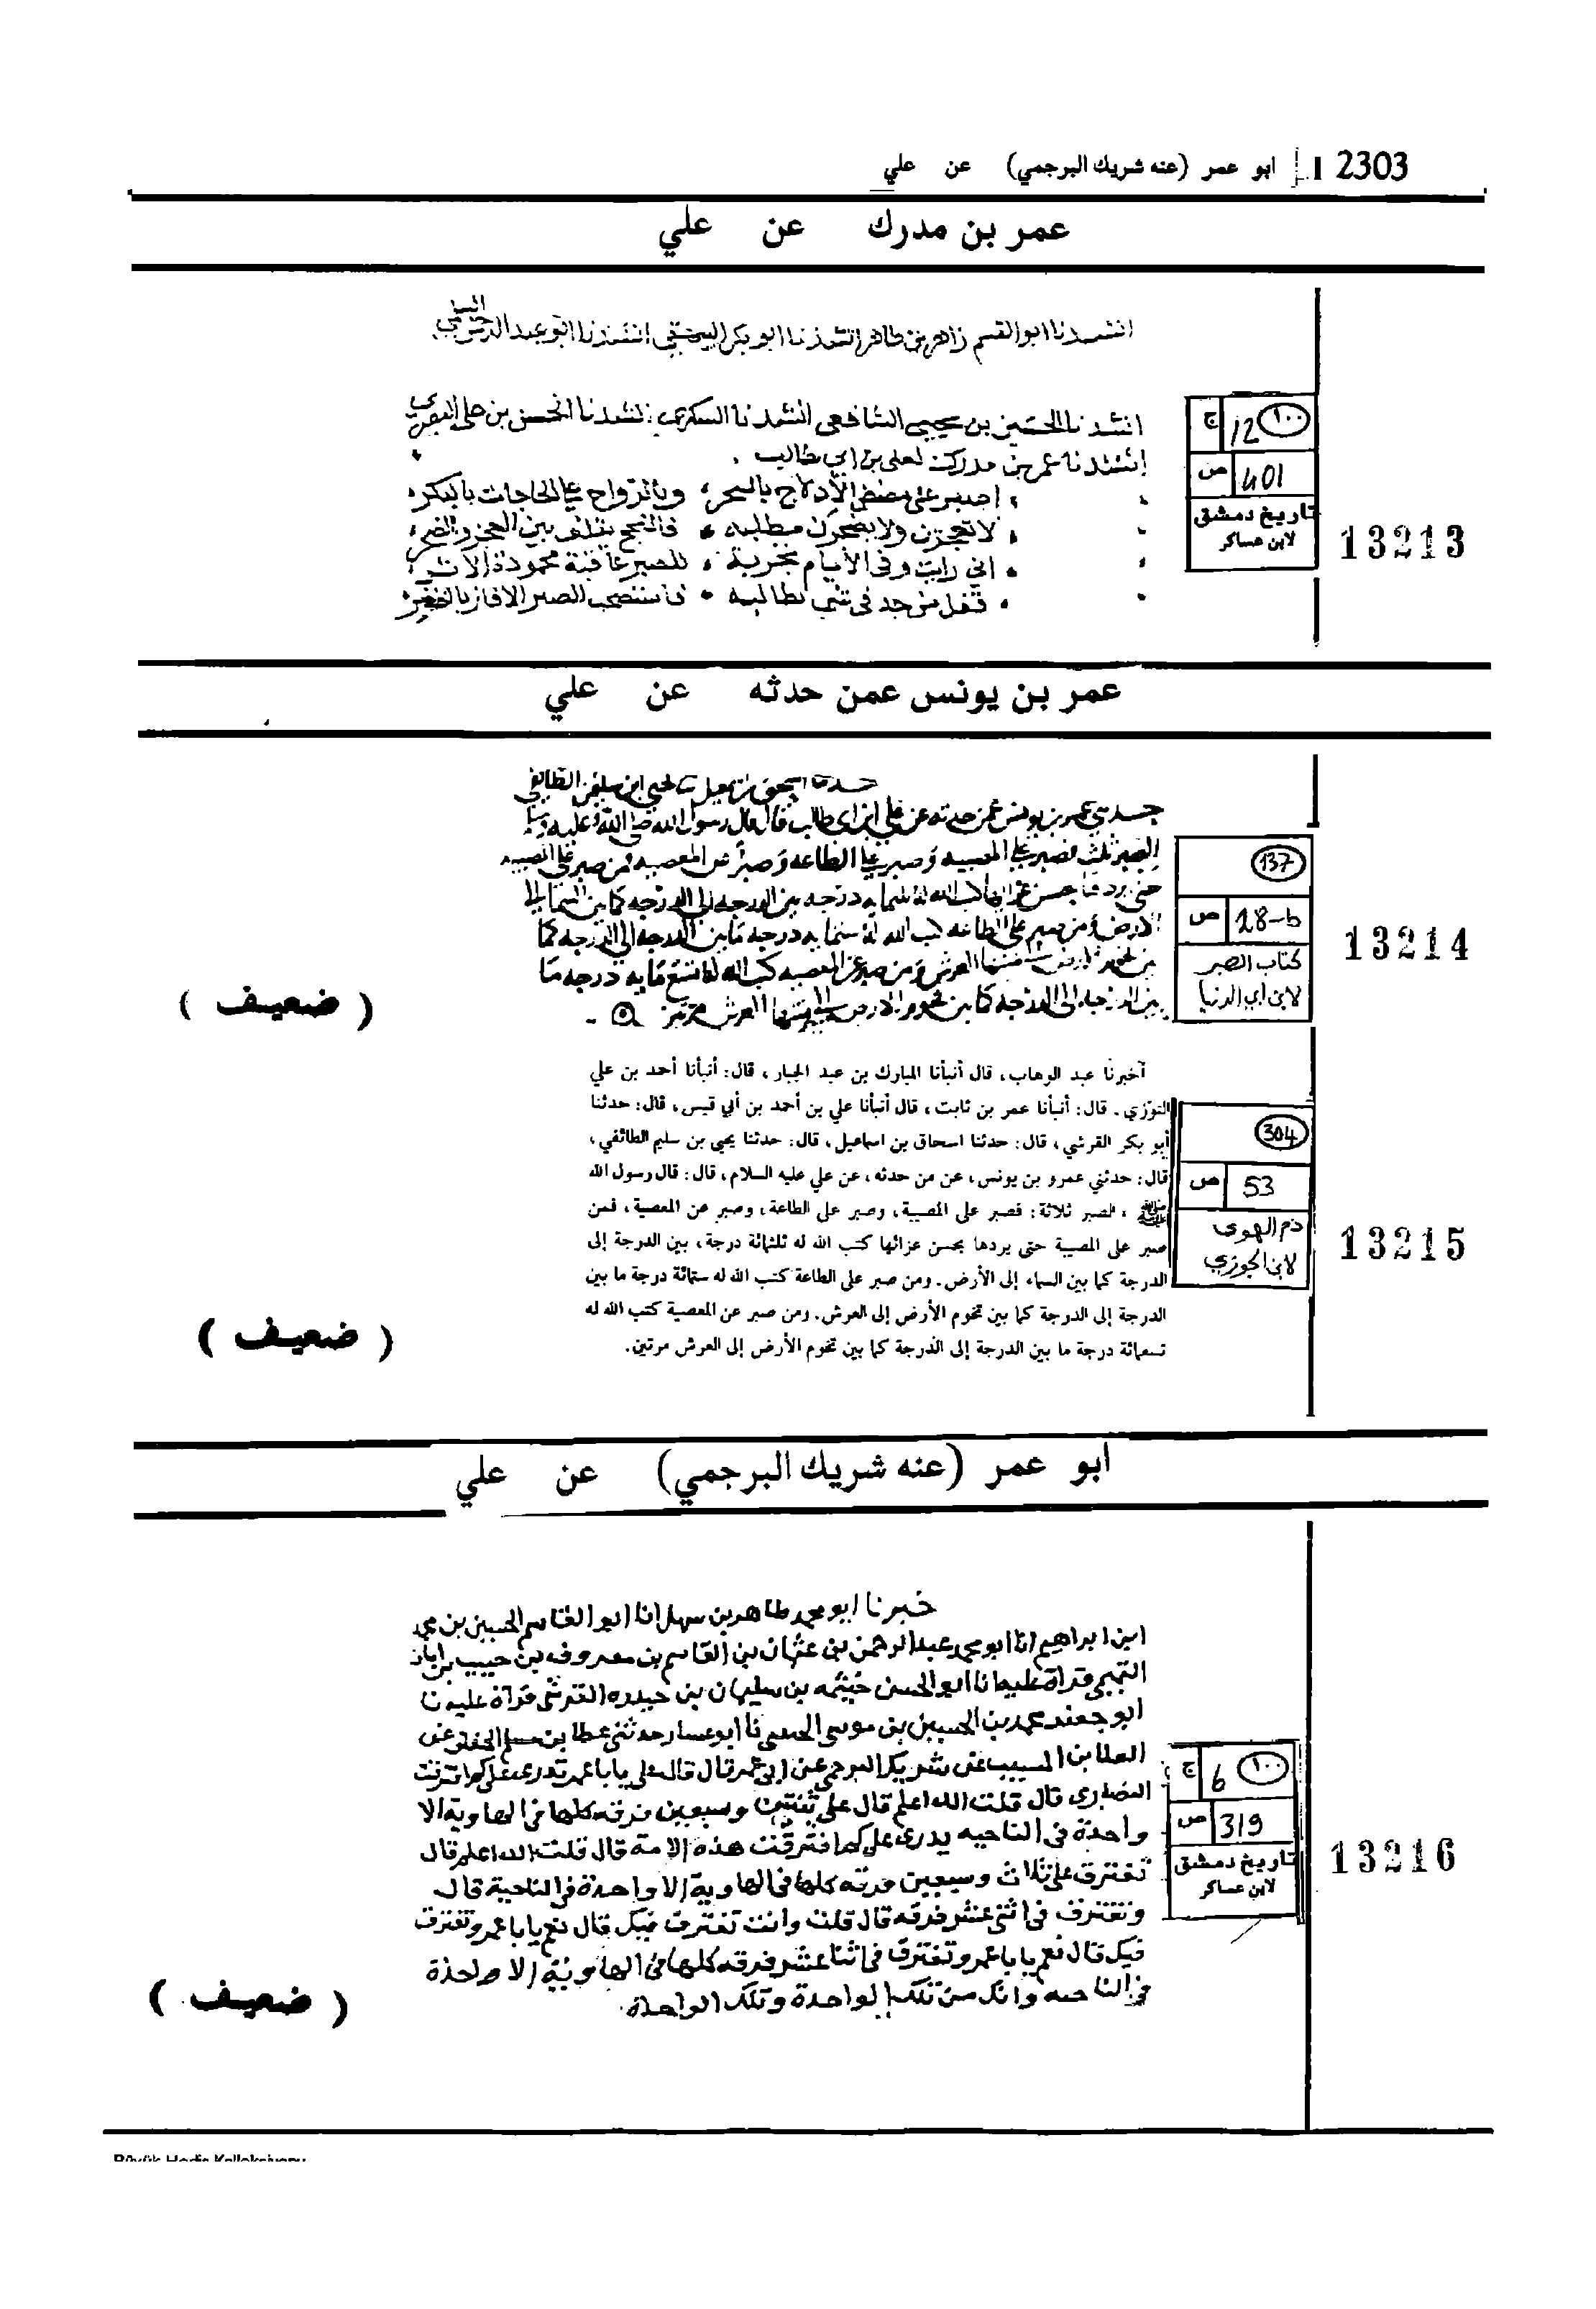 2303 ابو عمر (عنه شريك البرجمي) عن علي
عمر بن مدرك عن علي
انشدنا ابو القسم زاهر بن طاهر انشدنا ابو بكر البيهقي انشدنا ابو عبد الرحمن السلمي
انشدنا الحسين بن يحيى الشافعي انشدنا السكري انشدنا الحسن بن علي البصري
انشدنا عمر بن مدرك لعلي بن ابي طالب
اصبر على مضض الأدلاج بالسحر وبالرواح على الحاجات بالبكر
لا تعجزن ولا يضجرك مطلبه فالنجح يتلف بين العجز والضجر
اني رايت وفي الأيام تجربة للصبر عاقبة محمودة الاثر
فقل من جد في شي يطالبه فاستصحب الصبر الا فاز بالظفر
ج 12 ١٠٠
ص 401
تاريخ دمشق
لابن عساكر
13213
عمر بن يونس عمن حدثه عن علي
حدثنا اسحق بن اسمعيل نا يحيى ابن سليم الطائفي
حدثني عمر بن يونس عمن حدثه عن علي ابن ابي طالب قال قال رسول الله صلى الله عليه وسلم
الصبر ثلث فصبر على المصيبه وصبر على الطاعه وصبر عن المعصيه فمن صبر على المصيبه
حتى يردها بحسن عزائها كتب الله له ثلثمايه درجه بين الدرجه الى الدرجه كما بين السما الى
الارض ومن صبر على الطاعه كتب الله له ستمايه درجه ما بين الدرجه الى الدرجه كما
بين تخوم الارض الى منتها العرش ومن صبر عن المعصيه كتب الله له تسع مايه درجه ما
بين الدرجه الى الدرجه كما بين تخوم الارض الى منتها العرش مرتين
137
ص 28-b
كتاب الصبر
لابن أبي الدنيا
13214
( ضعيف )
أخبرنا عبد الوهاب، قال أنبأنا المبارك بن عبد الجبار، قال: أنبأنا أحمد بن علي
التوزي. قال: أنبأنا عمر بن ثابت، قال أنبأنا علي بن أحمد بن أبي قيس، قال: حدثنا
أبو بكر القرشي، قال: حدثنا اسحاق بن اسماعيل، قال: حدثنا يحيى بن سليم الطائفي،
قال: حدثني عمرو بن يونس، عن من حدثه، عن علي عليه السلام، قال: قال رسول الله
ﷺ، الصبر ثلاثة: فصبر على المصيبة، وصبر على الطاعة، وصبر عن المعصية، فمن
صبر على المصيبة حتى يردها بحسن عزائها كتب الله له ثلثمائة درجة، بين الدرجة إلى
الدرجة كما بين السماء إلى الأرض. ومن صبر على الطاعة كتب الله له ستمائة درجة ما بين
الدرجة إلى الدرجة كما بين تخوم الأرض إلى العرش. ومن صبر عن المعصية كتب الله له
تسعمائة درجة ما بين الدرجة إلى الدرجة كما بين تخوم الأرض إلى العرش مرتين.
304
ص 53
ذم الهوى
لابن الجوزي
13215
( ضعيف )
ابو عمر (عنه شريك البرجمي) عن علي
خبرنا ابو محمد طاهر بن سهل انا ابو القاسم الحسين بن محمد
ابن ابراهيم انا ابو محمد عبد الرحمن بن عثمان بن القاسم بن معروف بن حبيب بن ابان
التميمي قراة عليه انا ابو الحسن خيثمه بن سليمان بن حيدره القرشي قراة عليه نا
ابو جعفر محمد بن الحسين بن موسى نا ابو غسان حدثني عطا بن مسلم الخفاف عن
العلا بن المسيب عن شريك البرجمي عن ابي عمر قال قال علي يابا عمر تدري على كم افترقت
النصارى قال قلت الله اعلم قال على ثنتين وسبعين فرقه كلها في الهاوية الا
واحدة في الناجيه يدري على كم افترقت هذه الامة قال قلت الله اعلم قال
تفترق على ثلاث وسبعين فرقه كلها في الهاوية الا واحدة في الناجية قال
وتفترق في اثني عشر فرقه قال قلت وانت تفترق فيك قال نعم يابا عمر وتفترق
فيك قال نعم يابا عمر وتفترق في اثنا عشر فرقه كلها في الهاوية الا واحدة
في الناجيه وانك من تلك الواحدة وتلك الواحدة.
ج 6 ١٠٠
ص 319
تاريخ دمشق
لابن عساكر
13216
( ضعيف )
Büyük Hadis Kolleksiyonu